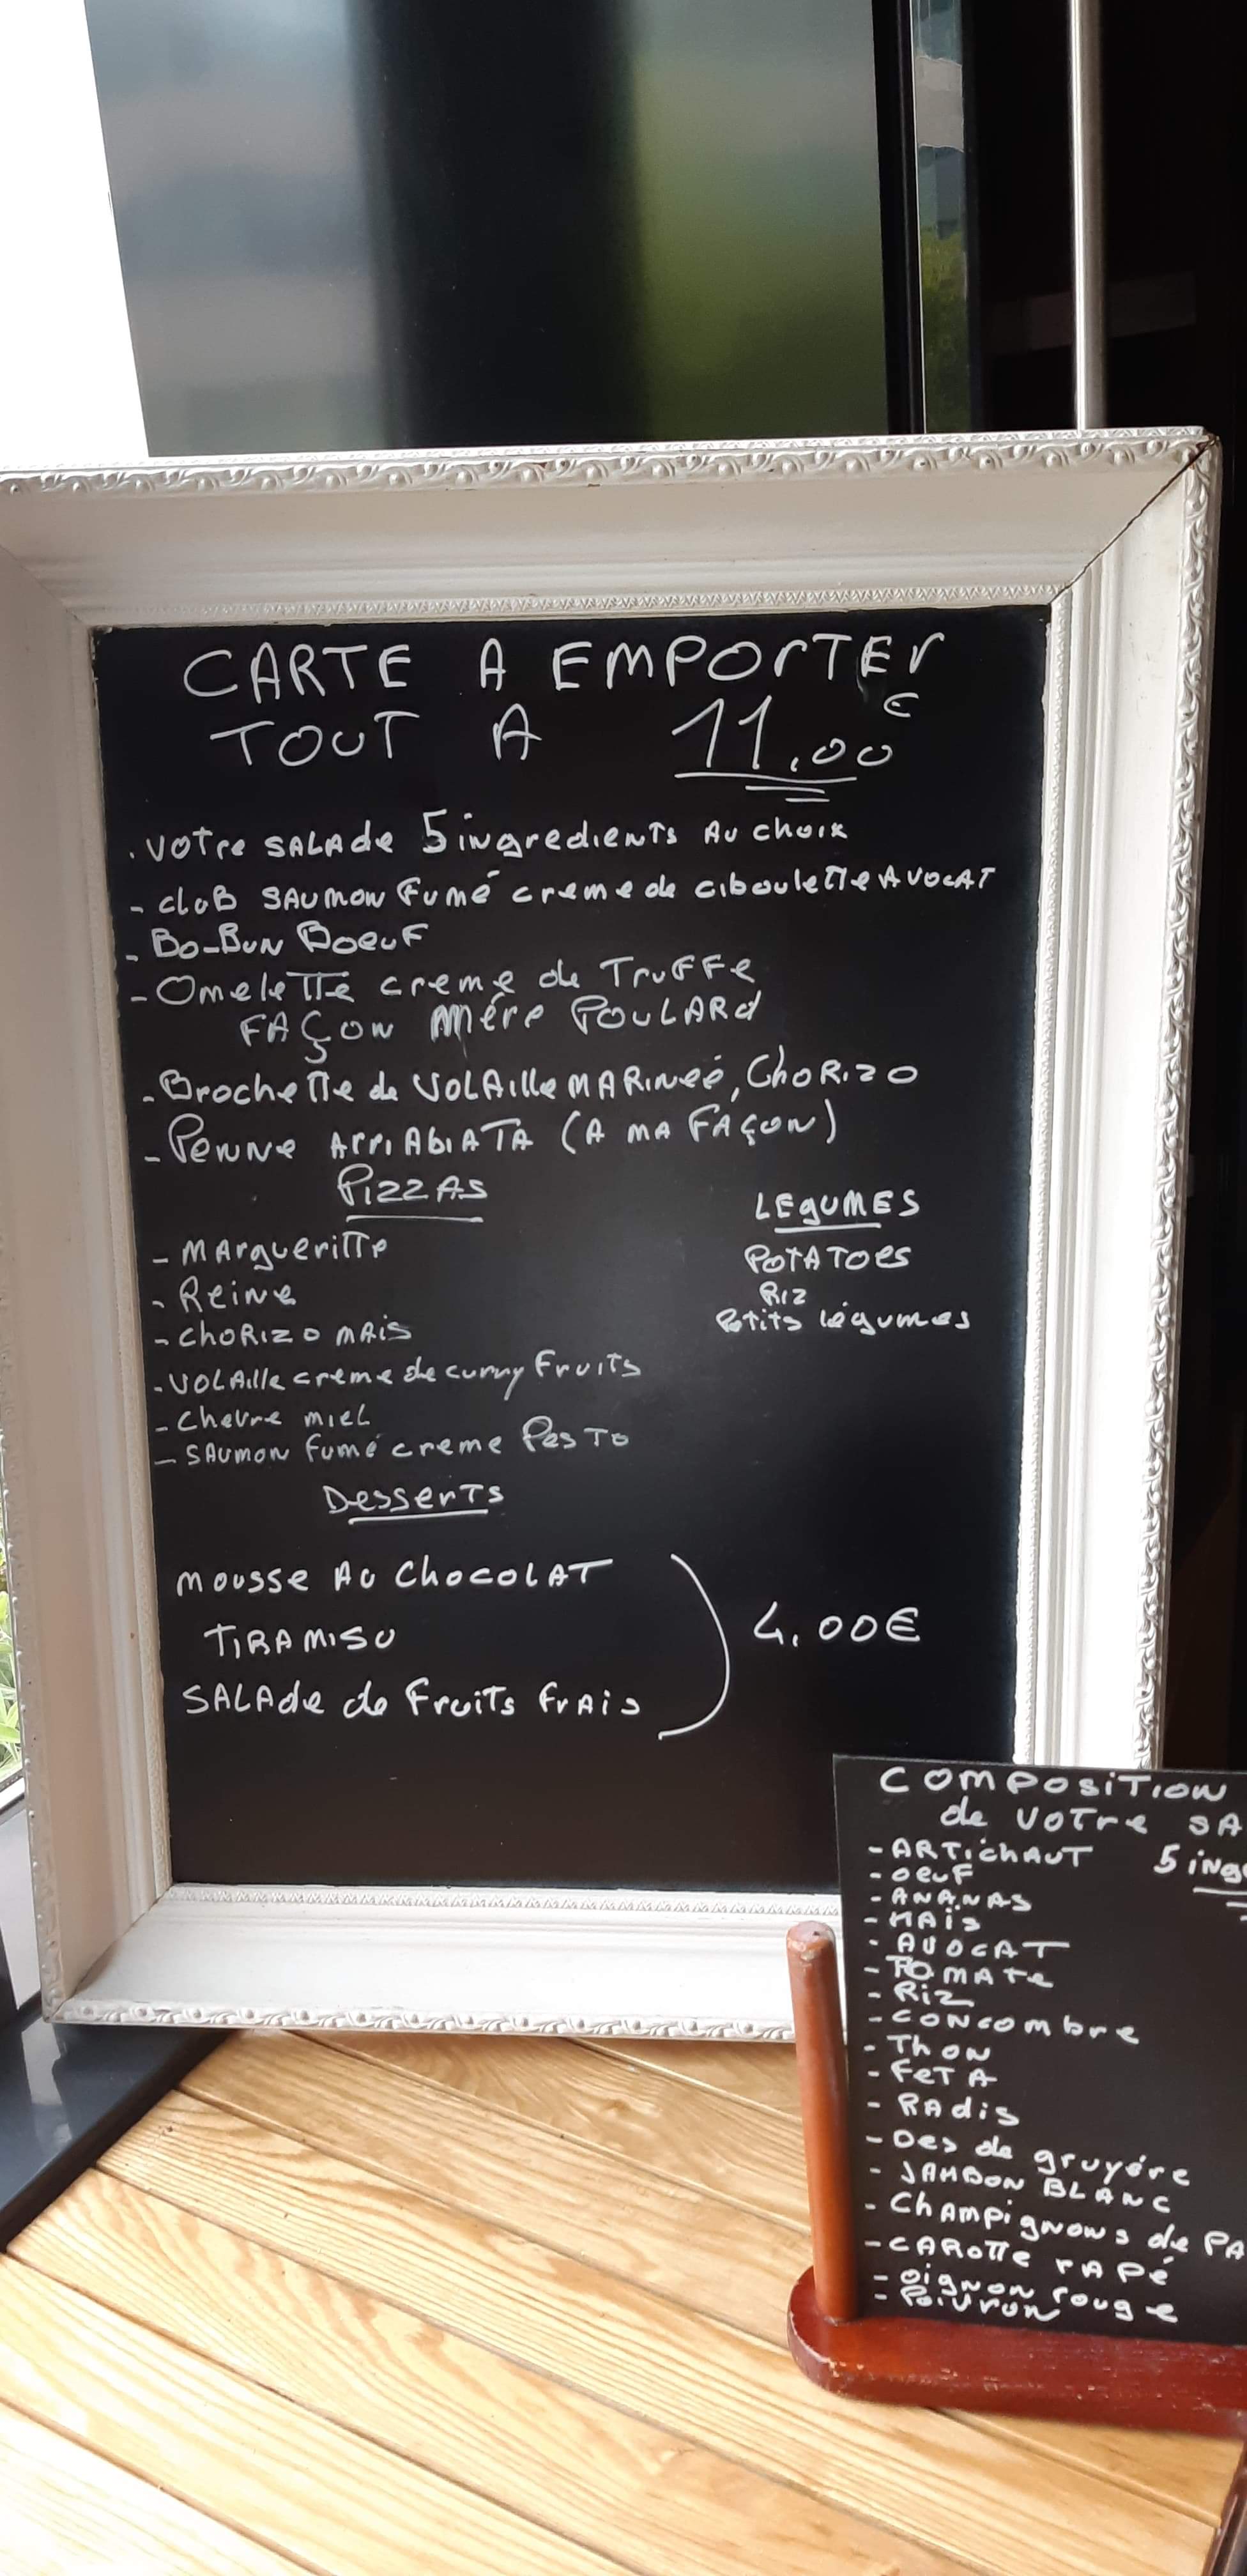 CARTE A EMPORTER
TOUT A 11.00€
. VOTre SALADe 5 ingredients AU choix
- CluB SAUMON Fumé creme de ciboulette AVOCAT
- Bo-Bun Boeuf
- Omelette creme de Truffe
FAÇON Mére POULARd
- Brochette de VOLAille MARINeé, ChoRizo
- Penne ArriAbiATA (A MA FAÇON)
PIZZAS
- MArgueritte
- Reine
- CHORIZO MAIS
- VOLAille creme de curry Fruits
- Chevre miel
- SAUMON fumé creme Pesto
LEgUMES
POTATOES
Riz
Petits légumes
Desserts
mousse AU CHOCOLAT
TIRAMISU
SALAde de Fruits frAis
4.00€
COMPOSITION
de VOTre SA
5 ing
- ARTichAUT
- oeuf
- ANANAS
- MAïs
- AVOCAT
- TOMATe
- Riz
- CONCOmbre
- ThON
- FeTA
- RAdis
- Des de gruyére
- JAMBON BLANC
- ChAmpignons de PA
- CAROTTe rAPé
- oignon rouge
- Poivron